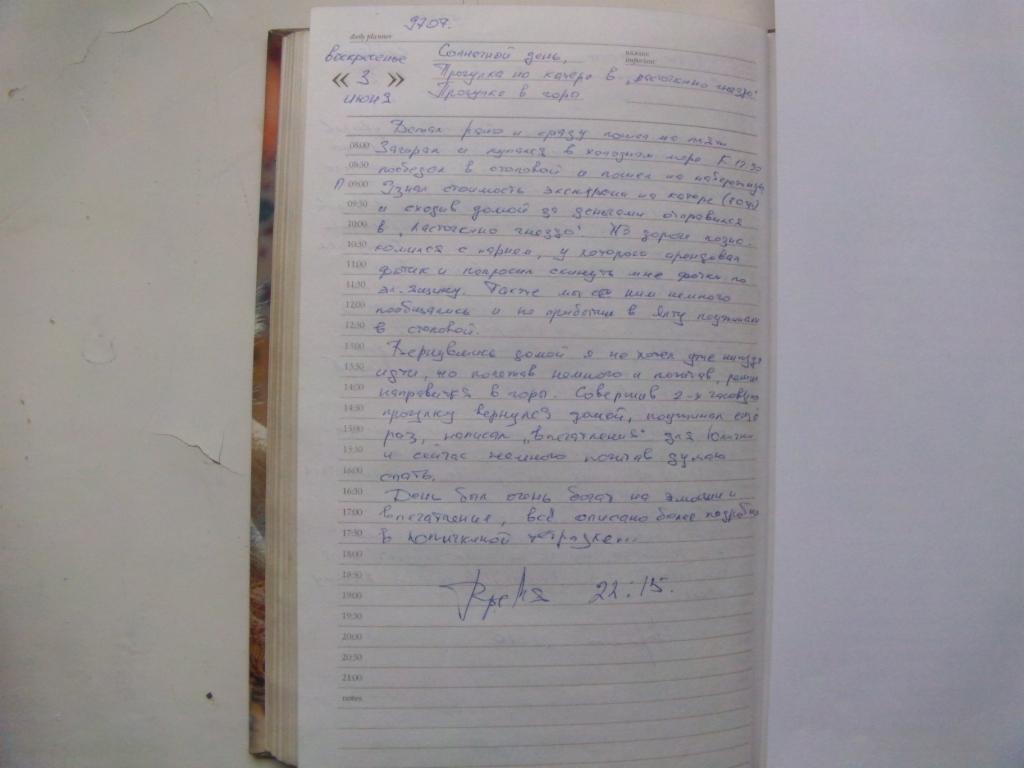 9707.
daily planner
воскресенье
важно
important
Солнечной день,
« 3 »
Прогулка на катере в „Ласточкино гнездо"
июня
Прогулка в горы
Встал рано и сразу пошел на пляж
08:00 Загорал и купался в холодном море. К 12.30
08:30 пообедал в столовой и пошел на набережную
09:00 Узнал стоимость экскурсии на катере
09:30 и сходив домой за деньгами отправился
10:00 в „Ласточкино гнездо". По дороге позна-
10:30 комился с парнем, у которого арендовал
11:00 фотик и попросил скинуть мне фотки по
11:30 эл. ящику. Также мы с ним немного
12:00 пообщались и по прибытии в Ялту поужинали
12:30 в столовой.
13:00 Вернувшись домой я не хотел уже никуда
13:30 идти, но полежав немного и почитав, решил
14:00 направится в горы. Совершив 2-х часовую
14:30 прогулку вернулся домой, поужинал ещё
15:00 раз, написал „впечатления" для
15:30 и сейчас немного почитав думаю
16:00 спать.
16:30 День был очень богат на эмоции и
17:00 впечатление, всё описано более подробно
17:30 в
18:00
18:30
19:00 Время 22:15.
19:30
20:00
20:30
21:00
notes